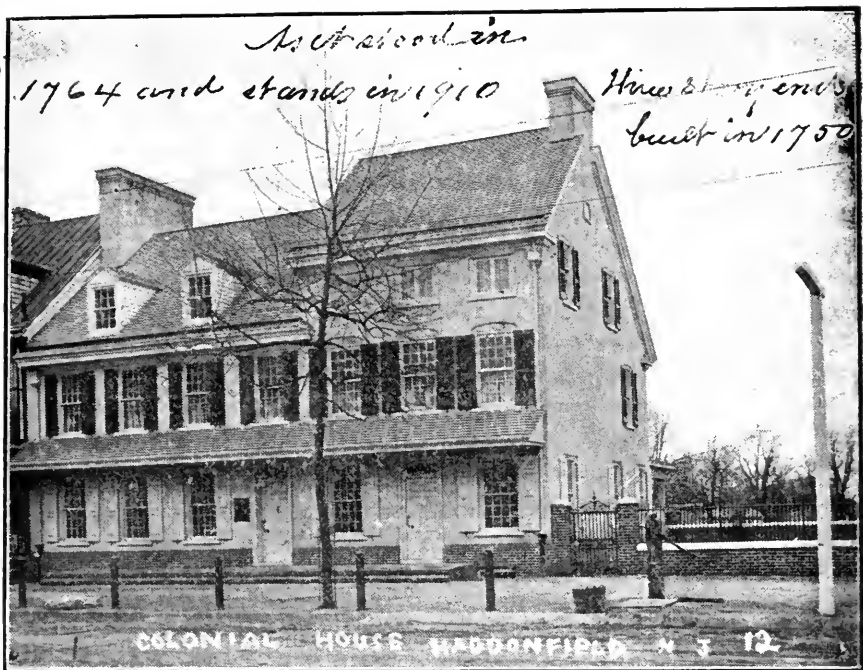 As it stood in
1764 and stands in 1910
Three Story end
built in 1750
COLONIAL HOUSE HADDONFIELD N J 12